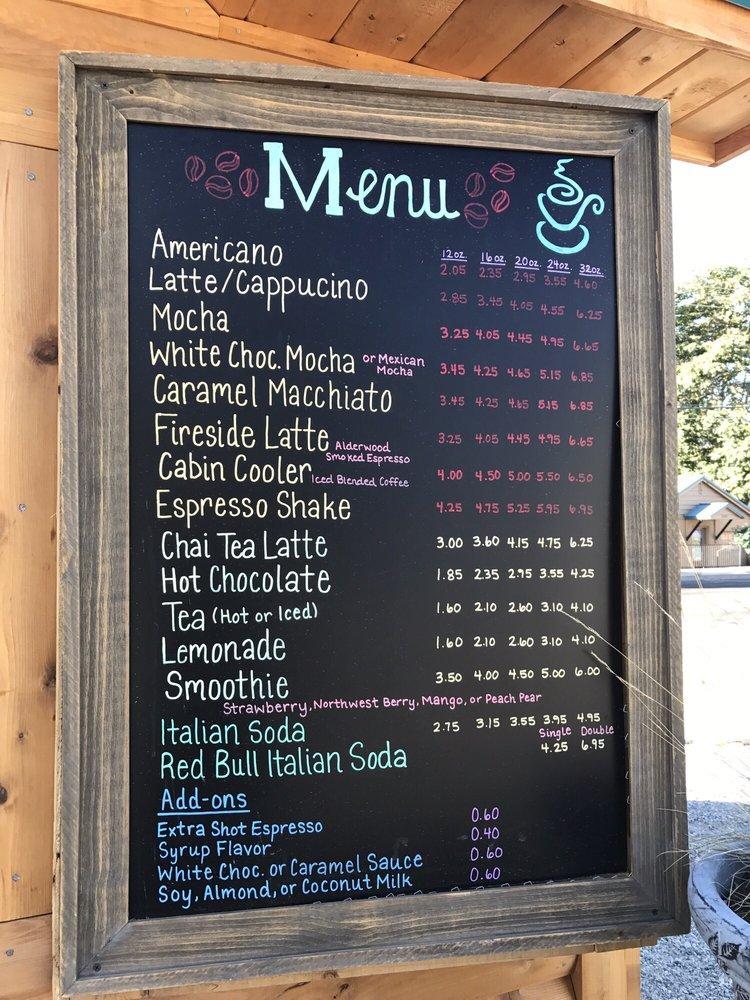 Menu
12oz. 16oz. 20oz. 24oz. 32oz.
Americano 2.05 2.35 2.95 3.55 4.60
Latte/Cappucino 2.85 3.45 4.05 4.55 6.25
Mocha 3.25 4.05 4.45 4.95 6.65
White Choc. Mocha or Mexican Mocha 3.45 4.25 4.65 5.15 6.85
Caramel Macchiato 3.45 4.25 4.65 5.15 6.85
Fireside Latte Alderwood Smoked Espresso 3.25 4.05 4.45 4.95 6.65
Cabin Cooler Iced Blended Coffee 4.00 4.50 5.00 5.50 6.50
Espresso Shake 4.25 4.75 5.25 5.95 6.95
Chai Tea Latte 3.00 3.60 4.15 4.75 6.25
Hot Chocolate 1.85 2.35 2.95 3.55 4.25
Tea (Hot or Iced) 1.60 2.10 2.60 3.10 4.10
Lemonade 1.60 2.10 2.60 3.10 4.10
Smoothie 3.50 4.00 4.50 5.00 6.00
Strawberry, Northwest Berry, Mango, or Peach Pear
Italian Soda 2.75 3.15 3.55 3.95 4.95
Single Double
Red Bull Italian Soda 4.25 6.95
Add-ons
Extra Shot Espresso 0.60
Syrup Flavor 0.40
White Choc. or Caramel Sauce 0.60
Soy, Almond, or Coconut Milk 0.60